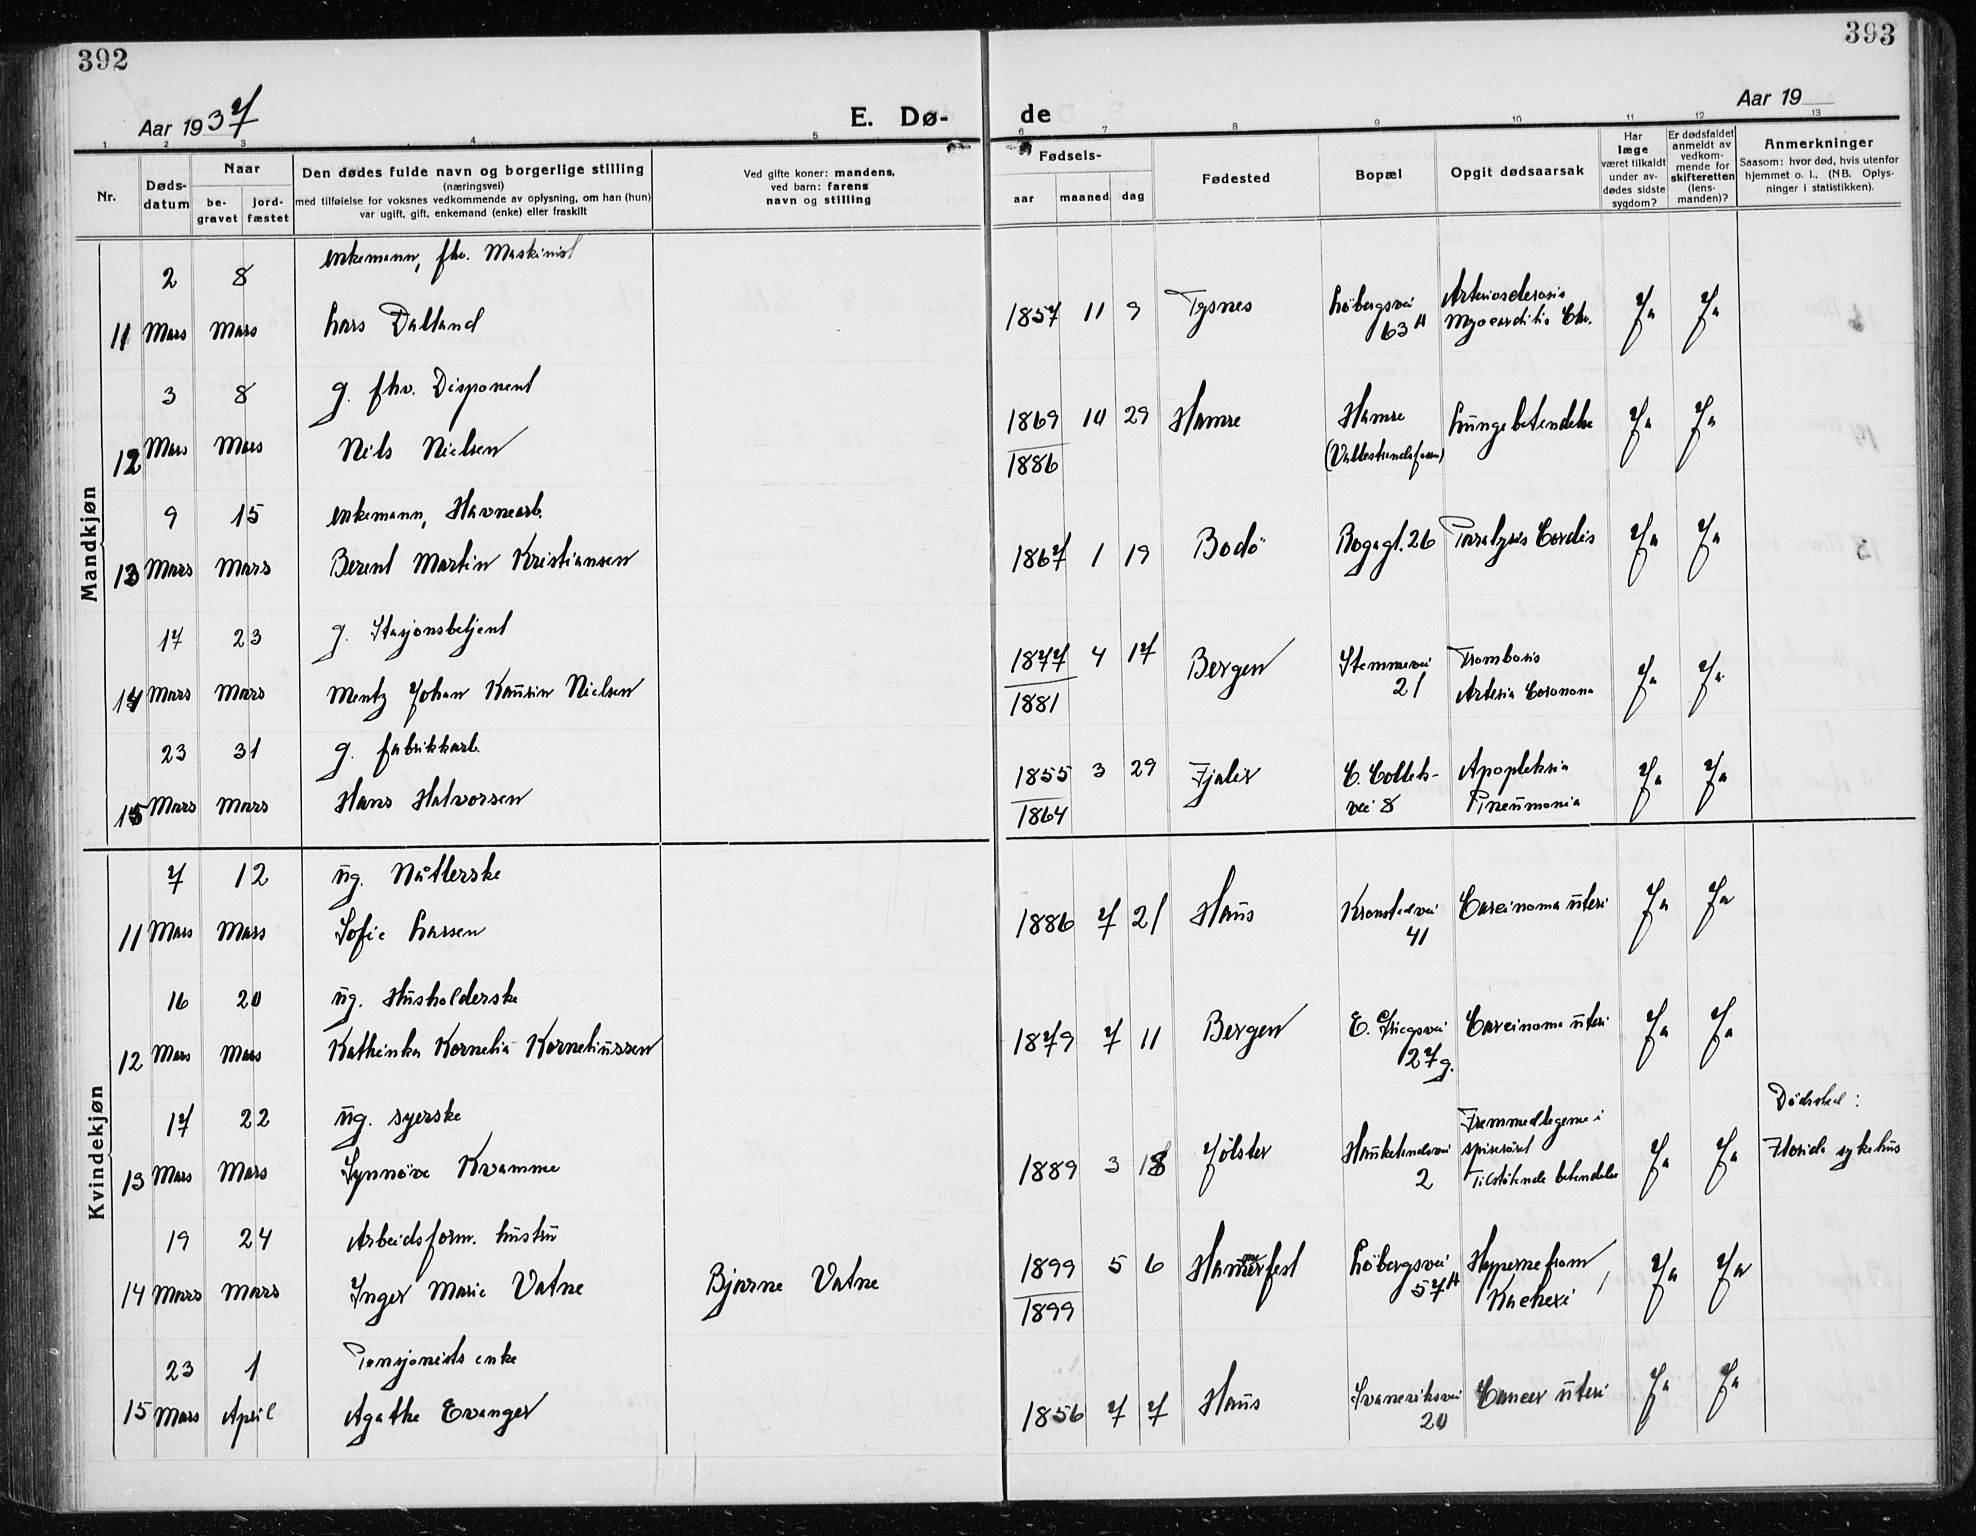 392
393
Aar 1937
E. Dø-
de
Aar 19
1 2 3 4 5 6 7 8 9 10 11 12 13
Nr.
Døds-
datum
Naar
be-
gravet
jord-
fæstet
Den dødes fulde navn og borgerlige stilling
(næringsvei)
med tilføielse for voksnes vedkommende av oplysning, om han (hun)
var ugift, gift, enkemand (enke) eller fraskilt
Ved gifte koner: mandens,
ved barn: farens
navn og stilling
Fødsels-
aar maaned dag
Fødested
Bopæl
Opgit dødsaarsak
Har
læge
været tilkaldt
under av-
dødes sidste
sygdom?
Er dødsfaldet
anmeldt av
vedkom-
mende for
skifteretten
(lens-
manden)?
Anmerkninger
Saasom: hvor død, hvis utenfor
hjemmet o. l., (NB. Oplys-
ninger i statistikken).
Mandkjøn
2 8 enkemann, fhv. Maskinist
11 Mars Mars Lars Dalland
1857 11 9 Tysnes Löbergsvei
63 A
Arteriosclerosis
Myocarditis Chr.
Ja Ja
3 8 g. fhv. Disponent
12 Mars Mars Nils Nielsen
1869 10 29 Hamre Hamre
1886
(Vallestrandsfossen)
Lungebetendelse
Ja Ja
9 15 enkemann, Havnearb.
13 Mars Mars Berent Martin Kristiansen
1867 1 19 Bodö Rogagt. 26 Paralysis Cordis Ja Ja
17 23 g. Stasjonsbetjent
14 Mars Mars Mentz Johan Kausin Nielsen
1877 4 17 Bergen Stemmevei
1881
21
Trombosis
Arteria Coronona
Ja Ja
23 31 g. fabrikkarb.
15 Mars Mars Hans Halvorsen
1855 3 29 Fjaler C. Colleh-
1864
vei 8
Apopleksia
Pneumonia
Ja Ja
Kvindekjøn
7 12 ug. Nåtlerske
11 Mars Mars Sofie Larsen
1886 7 21 Haus Kronstadvei
41
Carcinoma uteri Ja Ja
16 20 ug. Husholderske
12 Mars Mars Kathinka Kornelia Korneliussen
1879 7 11 Bergen E. Griegsvei
27g.
Carcinoma uteri Ja Ja
17 22 ug. syerske
13 Mars Mars Synnöve Kvamme
1889 3 18 Jölster Haukelandsvei
2
Fremmedlegeme i
spiseröret
Tilstötende betendelse
Ja Ja
Dödssted:
Florida sykehus
19 24 Arbeidsform. hustru
14 Mars Mars Inger Marie Vatne
Bjarne Vatne
1899 5 6 Hammerfest Löbergsvei
1899
57 A
Hypernefrom,
Kachexi
Ja Ja
23 1 Pensjonists enke
15 Mars April Agathe Evanger
1856 7 7 Haus Svaneviksvei
20
Cancer uteri Ja Ja